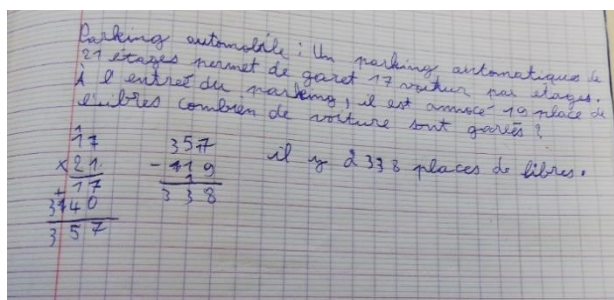 Parking automobile : Un parking automatique de
21 étages permet de garet 17 voitur par étages.
A l'entreé du parking, il est annocé 19 place de
l'ubres combien de voiture sont garées ?
1
17
x 21
17
+
3140
357
357
- 119
1
338
il y 2 338 places de libres.